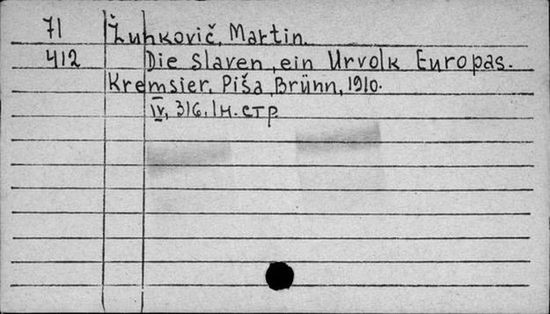 71 Žunkovič, Martin.
412 Die slaven, ein Urvolk Europas.
Kremsier, Piša, Brünn, 1910.
IV, 316, 1 н. стр